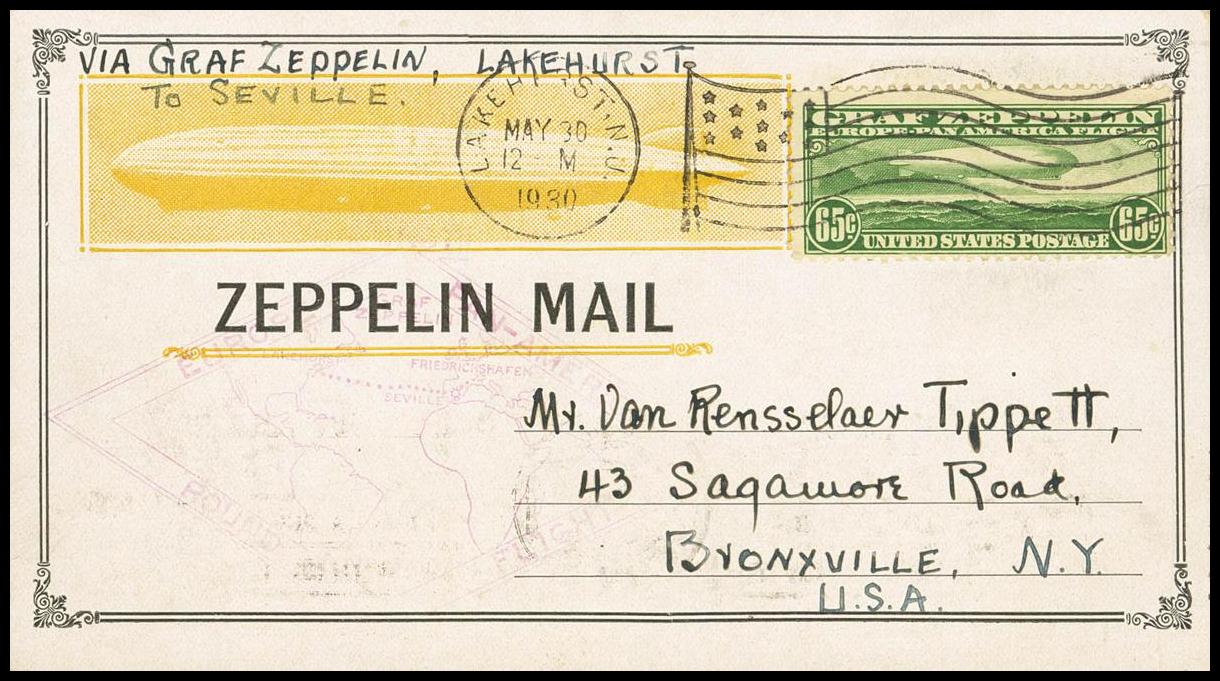 VIA GRAF ZEPPELIN, LAKEHURST
TO SEVILLE.
LAKEHURST, N.J.
MAY 30
12 - M
1930
GRAF ZEPPELIN
EUROPE-PAN AMERICA FLIGHT
65¢ UNITED STATES POSTAGE 65¢
ZEPPELIN MAIL
GRAF
ZEPPELIN
EUROPA PAN-AMER
LAKEHURST
FRIEDRICHSHAFEN
SEVILLE
ROUND FLIGHT
Mr. Van Rensselaer Tippett,
43 Sagamore Road,
BRONXVILLE, N.Y.
U.S.A.